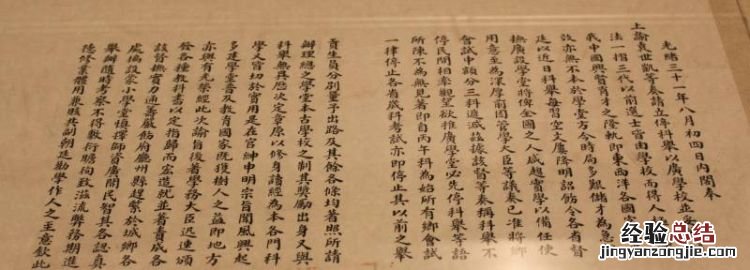 光緒三十一年八月初四日內閣奉
上諭袁世凱等奏請立停科舉以廣學校並妥
法一摺三代以前選士皆由學校而得人
我中國興賢育才之隆軌即東西洋各國
效亦無不本於學堂方今時局多艱儲才為急
廷以近日科舉每習空文屢降明詔飭令各省督
撫廣設學堂將俾全國之人咸趨實學以備任使
用意至為深厚前因管學大臣等議奏已准將鄉
會試中額分三科遞減茲據該督等奏稱科舉不
停民間相率觀望欲推廣學堂必先停科舉等語
所陳不為無見著即自丙午科為始所有鄉會試
一律停止各省歲科考試亦即停止其以前之舉
貢生員分別量予出路及其餘各條均著照所請
辦理總之學堂本古學校之制其獎勵出身又與
科舉無異歷次定章原以修身讀經為本各門科
學又皆切於實用是在官紳申明宗旨聞風興起
多建學堂普及教育國家既獲樹人之益即地方
亦與有光榮經此次諭旨後著學務大臣迅速頒
發各種教科書以定指歸而宏造就並著責成各
該督撫實力通籌嚴飭府廳州縣趕緊於城鄉各
處徧設蒙小學堂慎擇師資廣開民智其各認真
舉辦隨時考察不得敷衍瞻徇致滋流弊務期進
德修業體用兼賅共副朝廷勸學作人之至意欽此
经验总结
jingyanzongjie.com